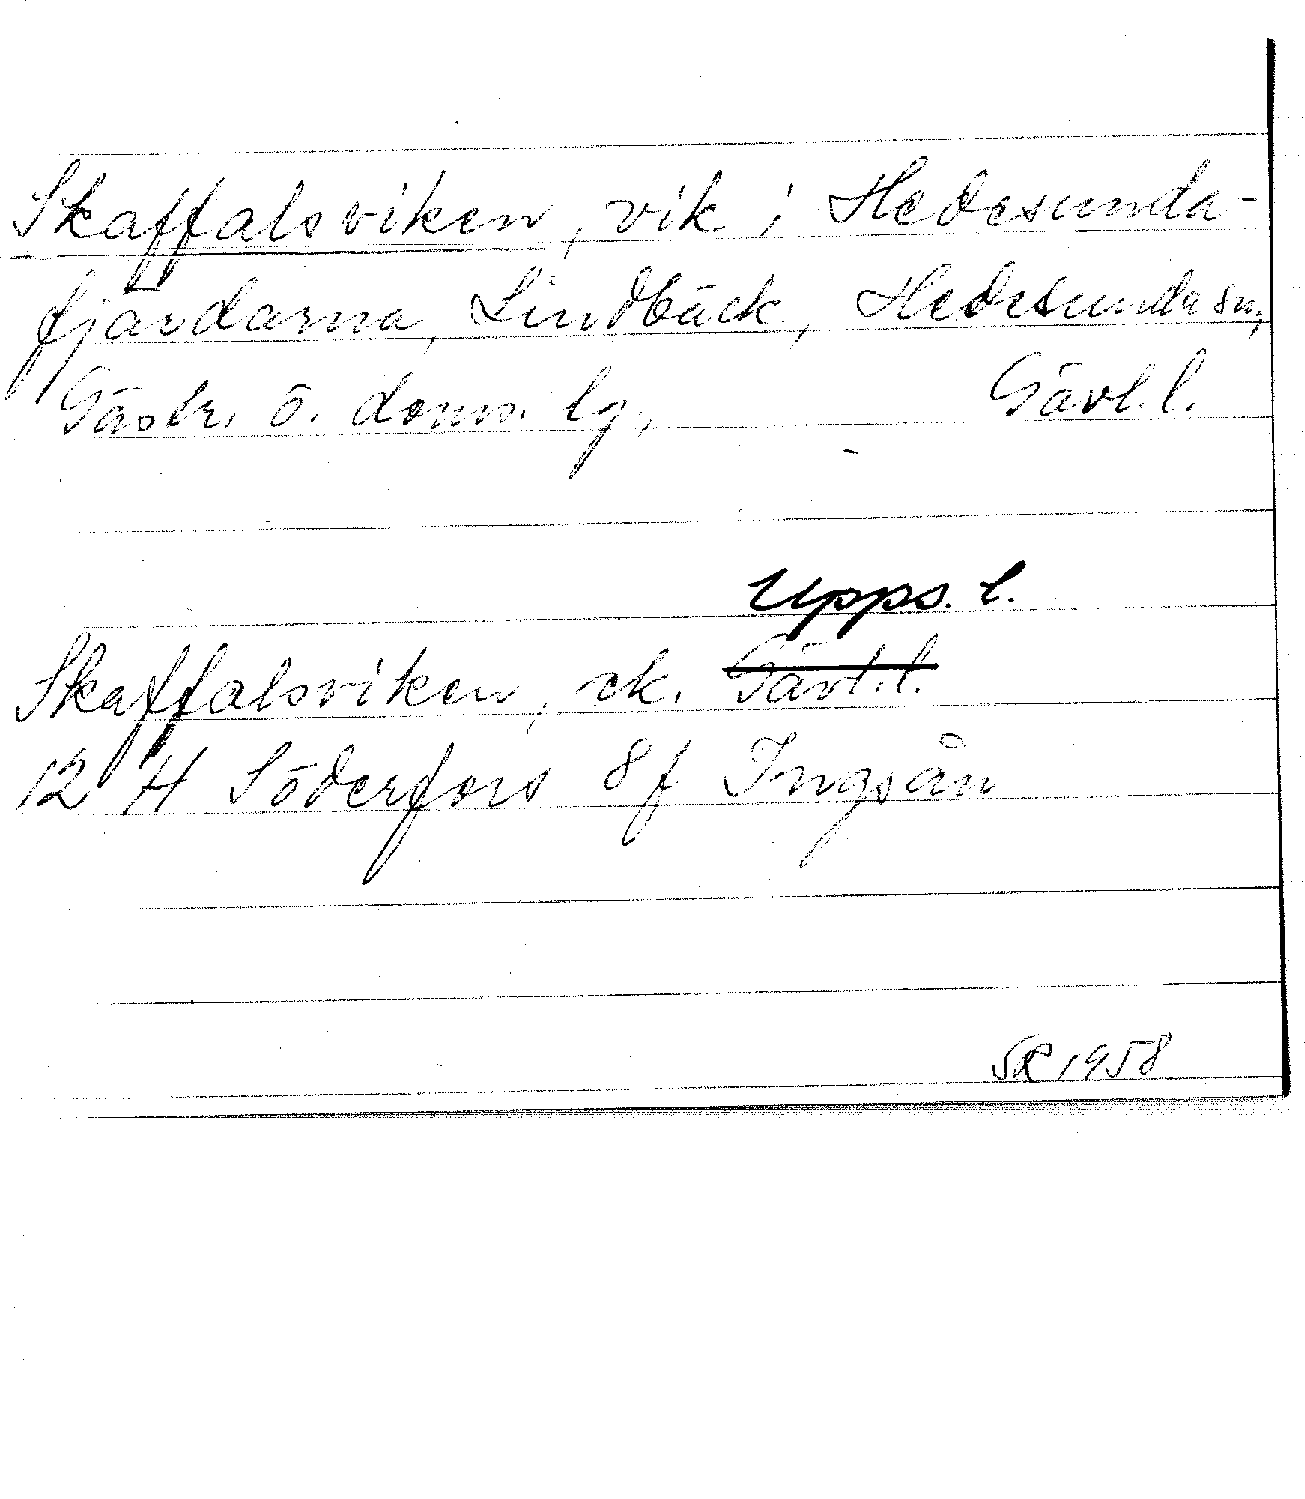 Skaffalsviken, vik i Hedesunda-
fjärdarna, Lindbäck, Hedesunda sn,
Gästr. ö. doms. lg, Gävl. l.
Upps. l.
Skaffalsviken, ek. Gävl. l.
12 H Söderfors 8f Ingsån
SR 1958